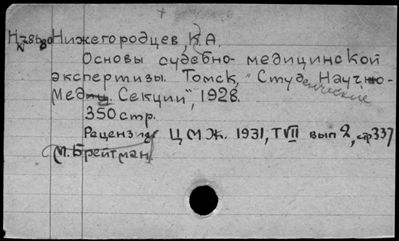 Нижегородцев, К.А.
Основы судебно-медицинской
экспертизы. Томск, "Студенческие Научно-
Мед. Секции", 1928.
350 стр.
Рецензия ЦМЖ. 1931, T VII вып 2, стр 337
М. Брейтман